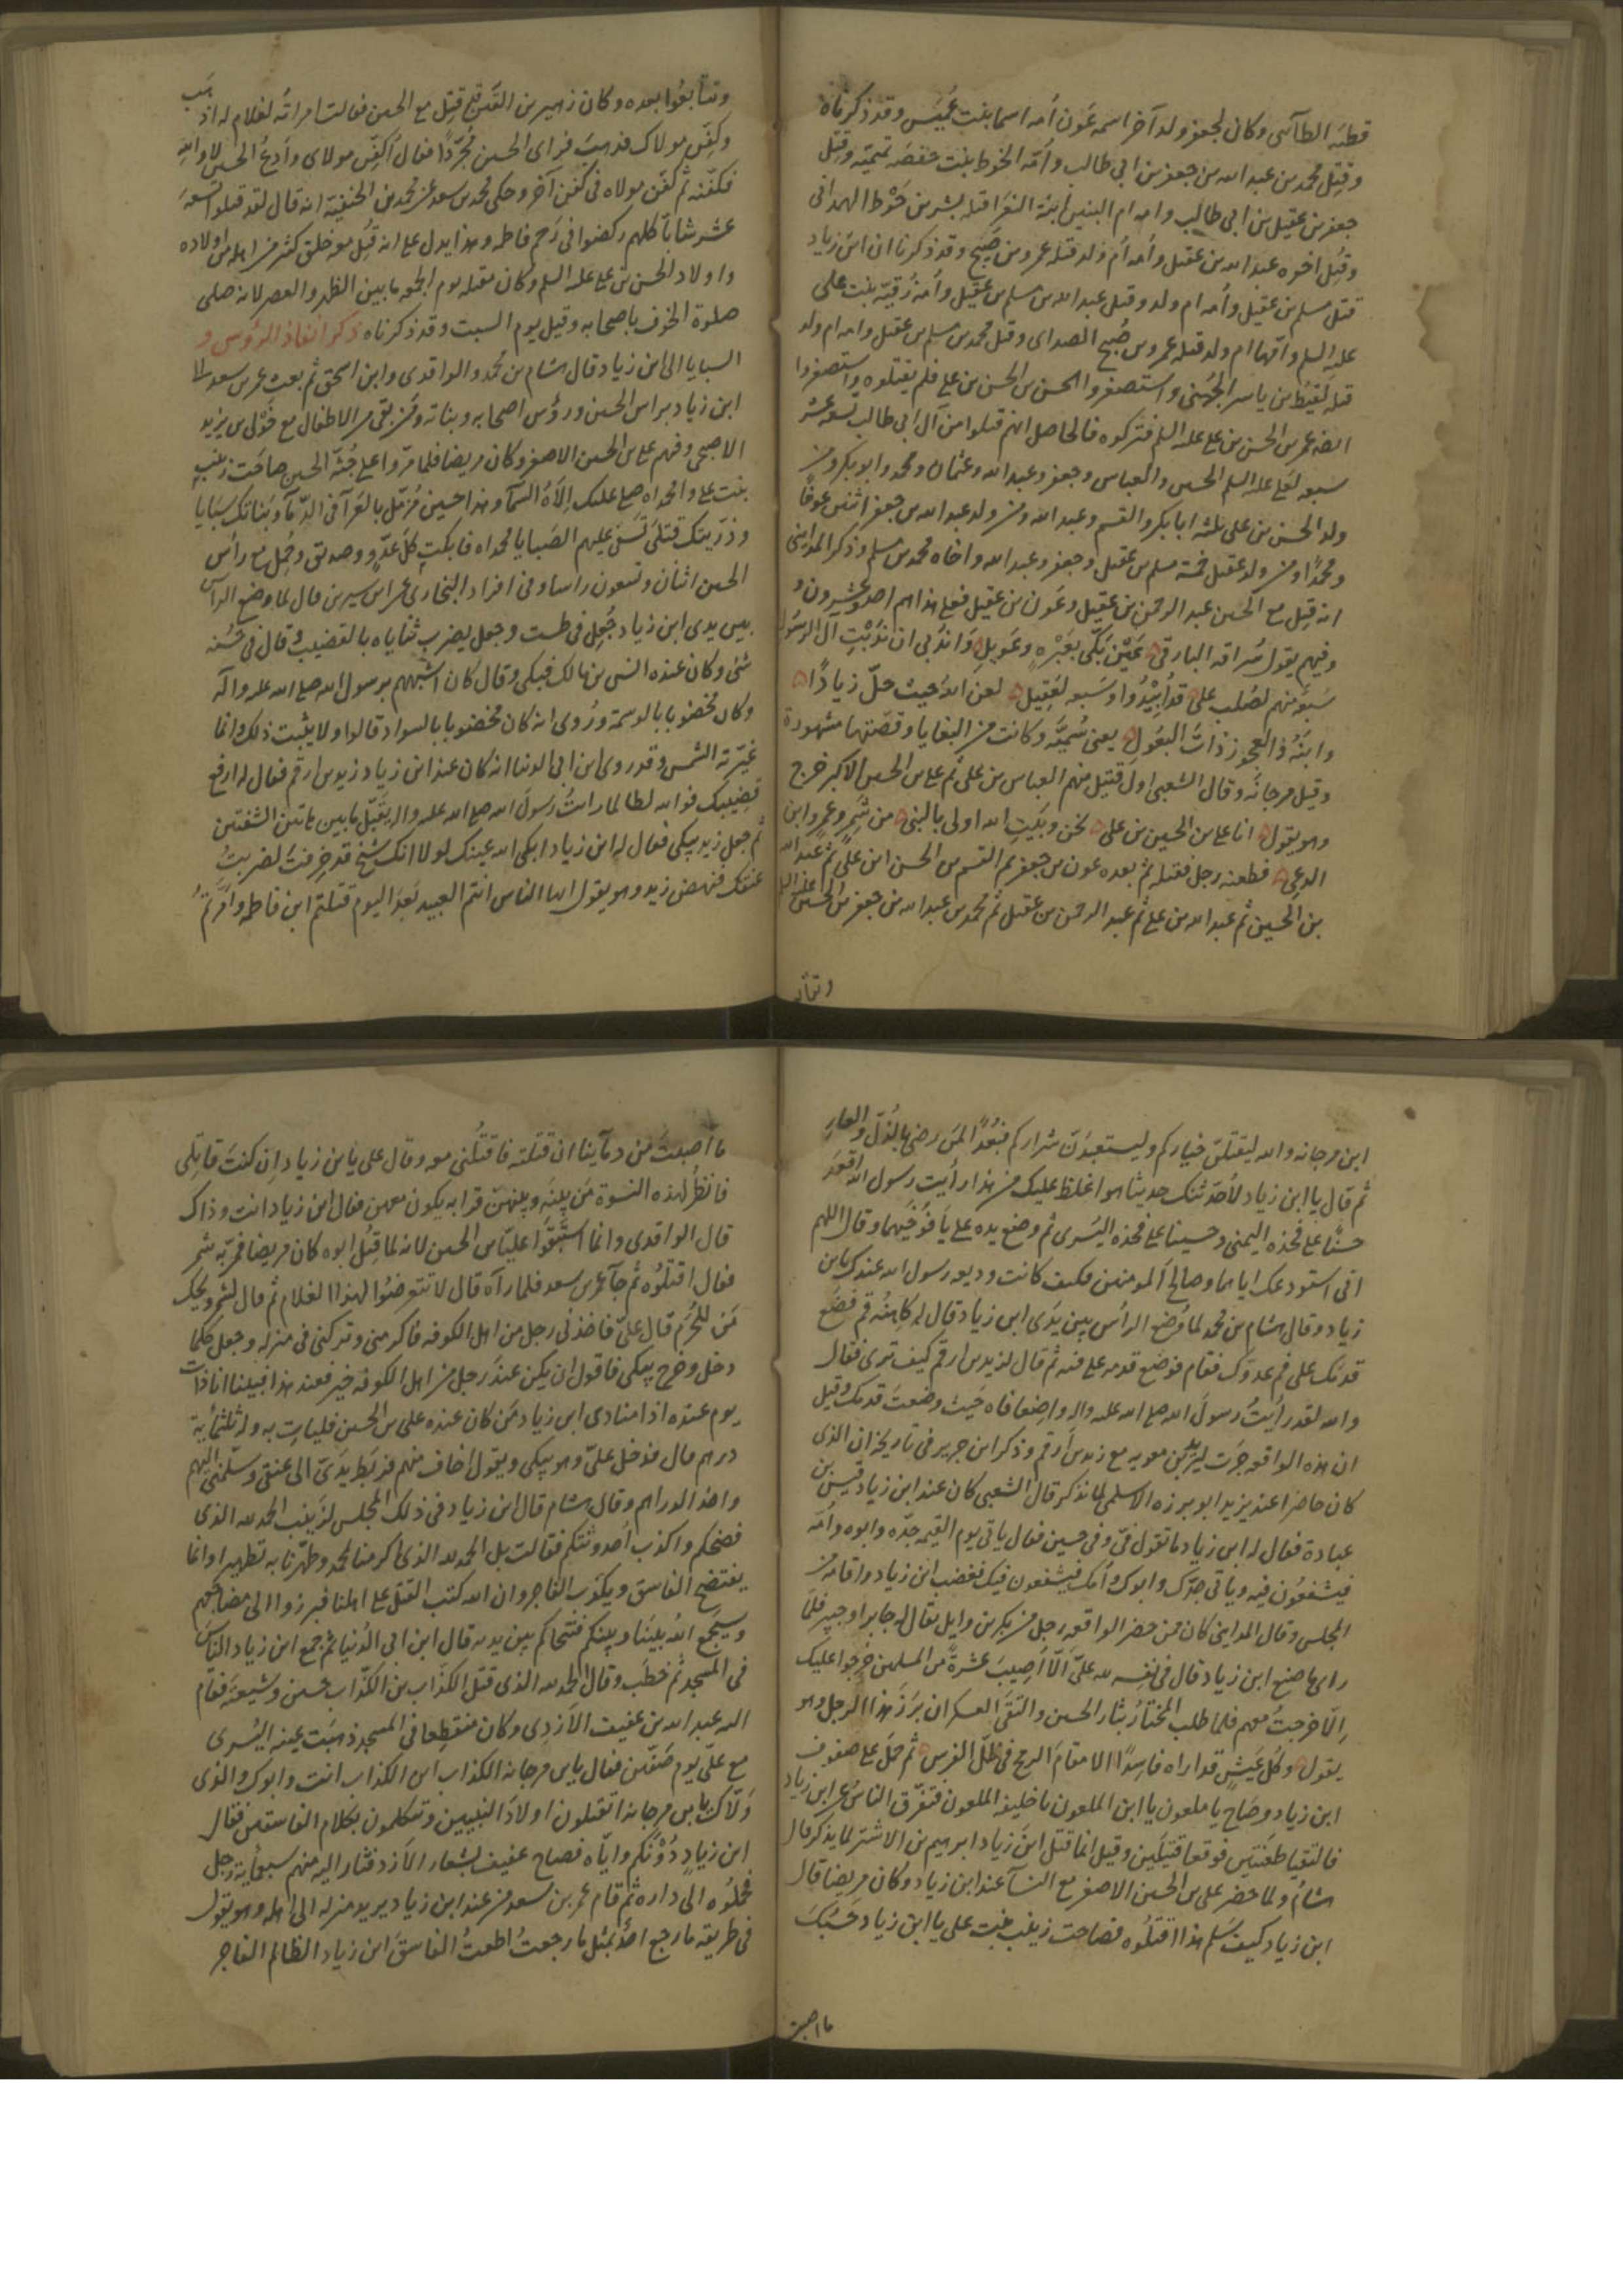 قطنه الطآئى وكان لجعفر ولد آخر اسمه عَون اُمه اسما بنت عُميَس وقد ذكرناه
وقتِل محمد بن عبد الله بن جعفر بن ابي طالب واُمّه الخوط بنت حفصَه تميميّه وقتِل
جعفر بن عقيل بن ابي طالب وامه ام البنين ابنة النغرا قتله بشر بن حَوْط الهمدانى
وقتِل اخوه عبد الله بن عقيل واُمه اُم ولد قتله عمرو بن صَبيح وقد ذكرنا ان ابن زياد
قتل مسلم بن عقيل واُمه ام ولد وقتل عبد الله بن مسلم بن عقيل واُمه رُقيّه بنت على
عليه السلم وامّها ام ولد قتله عمرو بن صُبيح الصداى وقتل محمد بن مسلم بن عقيل وامه ام ولد
قتله لَقيط بن ياسر الجُهنى واستصغروا الحسن بن الحسن بن على فلم يقتلوه واستصغروا
ايضه عمر بن الحسن بن على عليه السلم فتركوه فالحاصل انهم قتلوا من آل ابي طالب تسعه عشر
سبعه لعَلى عليه السلم الحسين والعباس وجعفر وعبد الله وعثمان ومحمد وابو بكر ومن
ولد الحسن بن على ثلثه ابا بكر والقسم وعبد الله ومن ولد عبد الله بن جعفر اثنين عَونًا
ومحمدًا ومن ولد عقيل خمسة مسلم بن عقيل وجعفر وعبد الله واخاه محمد بن مسلم وذكر المداينى
انه قتِل مع الحسين عبد الرحمن بن عقيل وعَون بن عقيل فعلى هذا هم احد وعشرون و
وفيهم يقول سُراقه البارقى عَيْن بَكّى بعَبْرهٍ وعَويلٍ وَاندُبى ان نَدَبْتِ آل الرسُول
سَبعَة منهم لصُلب على قد اُبيْدُوا وسَبعه لعَقيل لعن الله حيث حلّ زيادًا
وابنَهُ ذا العجوز ذات البعُول يعنى سُميَّه وكانت من البغايا وقصّتها مشهورة
وقيل مرجانه وقال الشعبى اول قتيل منهم العباس بن على ثم على بن الحسين الاكبر خرج
وهو يقول انا على بن الحسين بن على نحن وبَيتِ الله اولى بالنبى من شَمِرٍ وعمرو ابن
الدعى فطعنه رجل فقتله ثم بعده عون بن جعفر ثم القسم بن الحسن ابن علىٍّ ثم عبد الله
بن الحسين ثم عبد الله بن على ثم عبد الرحمن بن عقيل ثم محمد بن عبد الله بن جعفر بن الحسين
وتتا
وتتابعُوا بعده وكان زهير بن القَين قد قتِل مع الحسين فقالت امراته لغلام له اذهَب
وكفِّن مولاك فذهبَ فراى الحسين مُجرّدًا فقال اُكفِّن مولاى واَدعُ الحسين لا والله
فكفّنه ثم كفّن مولاه فى كفن آخر وحكى محمد بن سعد عن محمد بن الحنفيّة انه قال لقد قتلوا تسعَه
عشر شابًا كلهم ركضوا فى رَحم فاطمه وهذا يدل على انه قتِل معه خلق كثير من اهله من اولاده
واولاد الحسن بن على عليه السلم وكان مقتله يوم الجمعه ما بين الظهر والعصر لانه صلى
صلوة الخوف باصحابه وقيل يوم السبت وقد ذكرناه ذكر انفاذ الرؤس و
السبايا الى ابن زياد قال هشام بن محمد والواقدى وابن اسحق ثم بعث عمر بن سعد الى
ابن زياد براس الحسين ورؤس اصحابه وبناته ومن بقى من الاطفال مع خَوْلى بن يزيد
الاصبحى وفيهم على بن الحسين الاصغر وكان مريضا فلما مرّوا على جُثة الحسين صاحَت زينب
بنت على وا محمداه صلى عليك اِلَاهُ السّمآ وهذا حسين مُزمّل بالعَرآ فى الدّمآ وبَناتك سَبَايا
وذرّيتك قتلَى تسفى عليهم الصَبا يا محمداه فابكت كلَّ عدوٍّ وصديق وحُمِل مع راس
الحسين اثنان وتسعون راسا وفى افراد البخارى عن ابن سيرين قال لما وضع الراس
بين يدى ابن زياد جُعِل فى طست وجعل يضرب ثناياه بالقضيب وقال فى حُسْنه
شئ وكان عنده انس بن مالك فبكى وقال كان اشبههم برسول الله صلى الله عليه وآله
وكان مخضوبا بالوسمة ورُوى انه كان مخضوبا بالسواد قالوا ولا يثبت ذلك وانما
غيّرته الشمس وقد روى ابن ابى الدنيا انه كان عند ابن زياد زيد بن ارقم فقال له ارفع
قضيبك فوالله لطالما رايتُ رسولَ الله صلى الله عليه واله يقبّل ما بين هاتين الشفتين
ثم جعل زيد يبكى فقال له ابن زياد ابكى الله عينك لولا انك شيخ قد خرِفتَ لضربتُ
عنقك فنهض زيد وهو يقول ايها الناس انتم العبيد بَعدَ اليوم قتلتم ابن فاطمه وامّرتمُ
ابن مرجانه والله ليقتلنّ خياركم وليستعبدَنّ شراركم فبُعدًا لمن رضى بالذُلّ والعارِ
ثم قال يا ابن زياد لاُحدّثنك حديثا هو اغلظ عليك من هذا رايتُ رسول الله اقعَدَ
حسنًا على فخذه اليمنى وحسينا على فخذه اليُسرى ثم وضع يده على يافوُخَيهما وقال اللهم
انى استودعك اياهما وصالح المومنين فكيف كانت وديعه رسول الله عندك يا بن
زياد وقال هشام بن محمد لما وُضع الراس بين يَدَى ابن زياد قال له كاهنُه قم فضَع
قدمَك على فم عدوّك فقام فوضع قدمه على فيه ثم قال لزيد بن ارقم كيف ترى فقال
والله لقد رايتُ رسولَ الله صلى الله عليه واله واضِعا فاه حَيث وضعتَ قدمك وقيل
ان هذه الواقعه جرَت ليزيد بن معويه مع زيد بن اَرقم وذكر ابن جرير فى تاريخه ان الذى
كان حاضرا عند يزيد ابو برزه الاسلمى لما نذكر قال الشعبى كان عند ابن زياد قيس بن
عبادة فقال له ابن زياد ما تقول فىّ وفى حسين فقال ياتى يوم القيمه جدّه وابوه واُمّه
فيشفعُون فيه وياتى جدّك وابوك واُمك فيشفعون فيك فغضب ابن زياد واقامه من
المجلس وقال المداينى كان ممن حضر الواقعه رجل من بكر بن وايل يقال له جابر او جبير فلما
راى ما صنع ابن زياد قال فى نفسه لله علىَّ الّا اُصِيبَ عشرةً من المسلمين خرجوا عليك
اِلّا خرجتُ معهم فلما طلب المختارُ بثار الحسين والتقى العسكران بَرَزَ هذا الرجل وهو
يقول وكل عَيشٍ قد اراه فاسِدًا الا مقامَ الرمح فى ظلّ الفرس ثم حمَلَ على صفوف
ابن زياد وصَاح يا ملعون يا ابن الملعون يا خليفه الملعون فتفرّق الناسُ عن ابن زياد
فالتقيا طعَنتين فوقعا قتيلَين وقيل انما قتل ابنَ زياد ابرهيم بن الاشتر لما يذكر قال
هشام ولما حضر على بن الحسين الاصغر مع النسآ عند ابن زياد وكان مريضا قال
ابن زياد كيف سَلم هذا اقتلُوه فصاحت زينب بنت على يا ابن زياد حَسْبُكَ
ما اصبت
ما اصبتَ من دمآئنا ان قتلته فاقتُلنى معه وقال على يا بن زياد اِن كنتَ قاتِلى
فانظُر لهذه النسوة مَن بينَه وبينهنّ قرابه يكون معهن فقال ابن زياد انت وذاك
قال الواقدى وانما استَبقَوا علىّ بن الحسين لانه لما قتِل ابوه كان مريضا فمرّ به شمر
فقال اقتلُوه ثم جآء عمر بن سعد فلما رآه قال لا تتعرضُوا لهذا الغلام ثم قال لشمر ويحك
مَن للحُرَم قال علىّ فاخذنى رجل من اهل الكوفه فاكرمنى وتركنى فى منزله وجعل كلما
دخل وخرج يبكى فاقول ان يكن عندَ رجل من اهل الكوفه خير فعند هذا فبينا انا ذات
يوم عنده اذا منادى ابن زياد مَن كان عنده على بن الحسين فليات به وله ثلثمأية
درهم قال فدخل علىَّ وهو يبكى ويقول اخاف منهم فربَط يدَىَّ الى عنقى وسلّمنى اليهم
واخذ الدراهم وقال هشام قال ابن زياد فى ذلك المجلس لزَينب الحمد لله الذى
فضحكم واكذب اُحدوثتكم فقالت بل الحمد لله الذى اكرمنا بمحمد وطهّرنا به تطهيرا وانما
يفتضح الفاسقَ ويكذب الفاجر وان الله كتب القتل على اهلنا فبرزوا الى مضاجعهم
وسيَجمع اللهُ بيننا وبينكم فنتحاكم بين يديه قال ابن ابى الدُنيا ثم جمع ابن زياد الناسَ
فى المسجد ثم خطَب وقال الحمد لله الذى قتل الكذّاب بن الكذّاب حسين وشيعتَه فقام
اليه عبد الله بن عفيف الازدى وكان منقطِعا فى المسجد ذهبَت عينه اليُسرى
مع علىّ يوم صَفّين فقال يا بن مرجانه الكذاب ابن الكذاب انت وابوك والذى
وَلّاك يا بن مرجانه اتقتلون اولادَ النبيين وتتكلمون بكلام الفاسقين فقال
ابن زيادٍ دُوْنَكُم وايّاه فصاح عفيف بشعار الاَزد فثار اليه منهم سبعُمأيه رجل
فحملُوه الى داره ثم قام عمر بن سعد من عند ابن زياد يريد منزله الى اهله وهو يقول
فى طريقه ما رجع احَدٌ بمثل ما رجعتُ اطعتُ الفاسقَ ابن زياد الظالم الفاجر